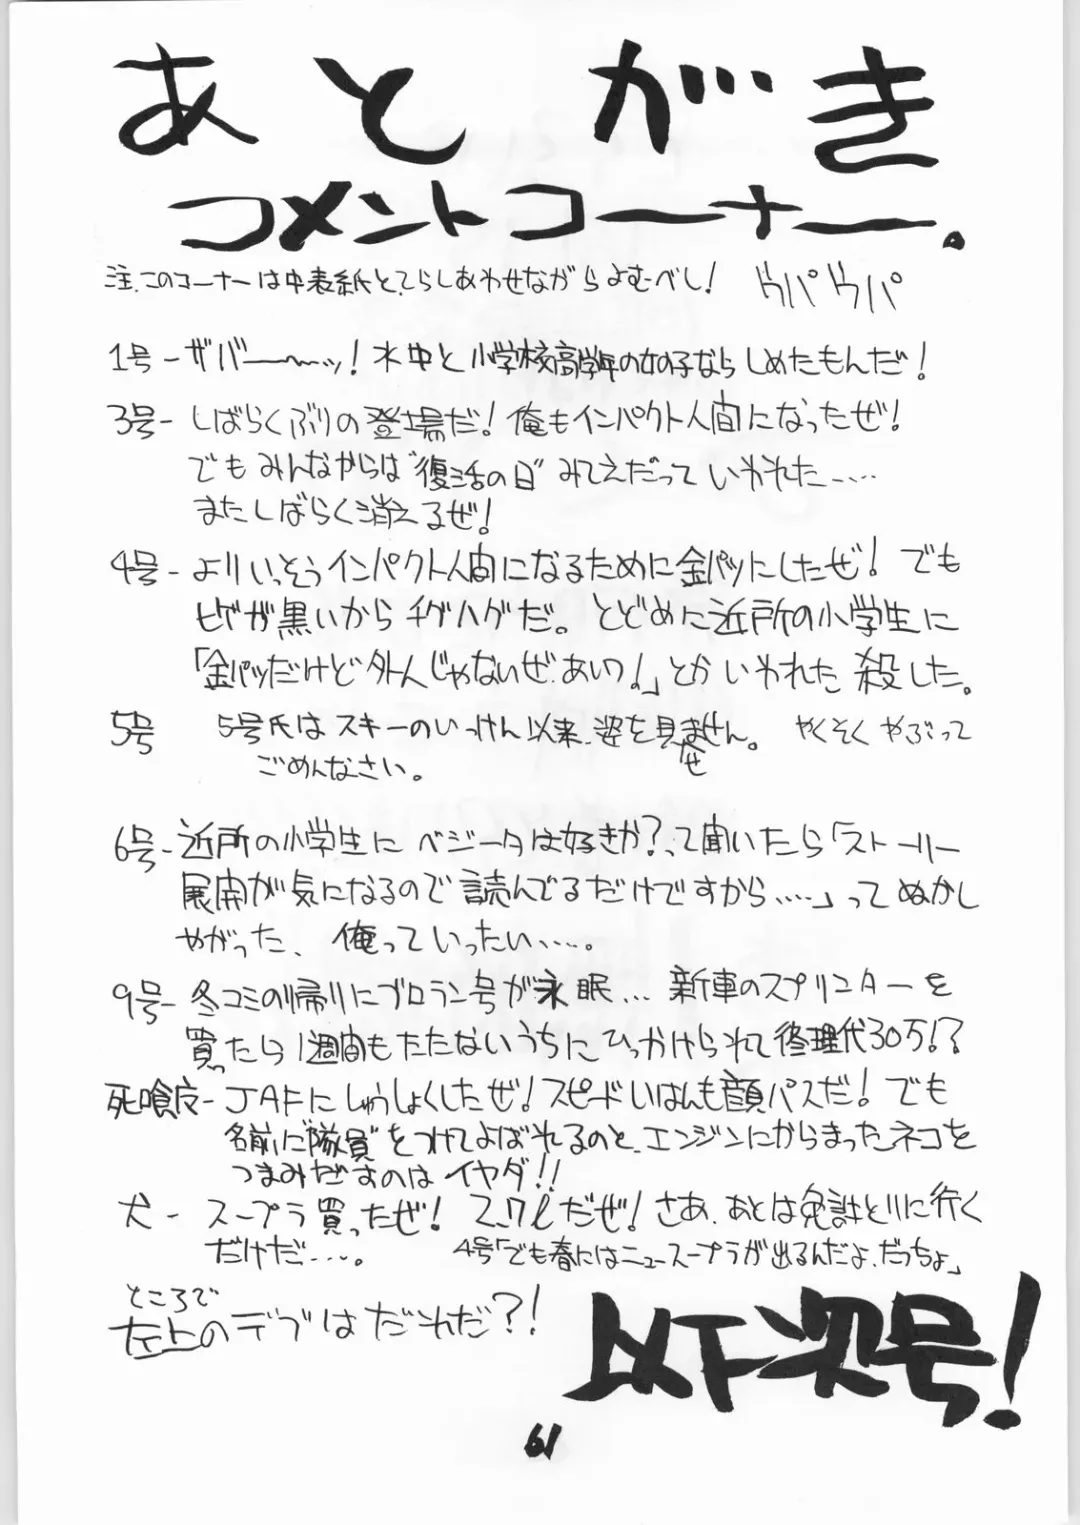 あとがき
コメントコーナー。
注.このコーナーは中表紙とてらしあわせながらよむべし！ ゥパゥパ
1号-ザバー〜〜ッ！水中と小学校高学年の女の子ならしめたもんだ！
3号-しばらくぶりの登場だ！俺もインパクト人間になったぜ！
でもみんなからは"復活の日"みてえだっていわれた‥‥
またしばらく消えるぜ！
4号-よりいっそうインパクト人間になるために金パツにしたぜ！でも
ヒゲが黒いからチグハグだ。とどめに近所の小学生に
「金パツだけど外人じゃないぜ.あいつ！」とかいわれた 殺した。
5号 5号氏はスキーのいっけん以来、姿を見せません。 やくそくやぶって
ごめんなさい。
6号-近所の小学生にベジータは好きか？って聞いたら「ストーリー
展開が気になるので読んでるだけですから‥‥」ってぬかし
やがった、俺っていったい‥‥。
9号-冬コミの帰りにブロラン号が永眠… 新車のスプリンターを
買ったら1週間もたたないうちにひっかけられて修理代30万！？
死喰皮-JAFにしゅうしょくしたぜ！スピードいはんも顔パスだ！でも
名前に"隊員"をつけてよばれるのと、エンジンにからまったネコを
つまみだすのはイヤダ！！
犬-スープラ買ったぜ！2.7lだぜ！さあ、あとは免許とりに行く
だけだ‥‥。 4号「でも春にはニュースープラが出るんだよ.だっちょ」
ところで
左上のデブはだれだ？！
以下次号！
61